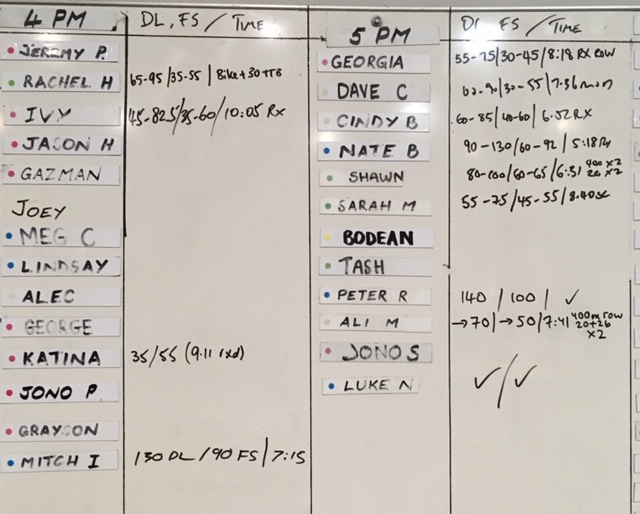 4 PM DL, FS / TIME
JEREMY P.
RACHEL H 65-95 /35-55 | Bike + 30 TTB
IVY 45-82.5/35-60/10:05 Rx
JASON H
GAZMAN
JOEY
MEG C
LINDSAY
ALEC
GEORGE
KATINA 35/55 (9.11 rxd)
JONO P.
GRAYSON
MITCH I 130 DL /90 FS / 7:15
5 PM DL FS / TIME
GEORGIA 55-75/30-45/8:18 Rx row
DAVE C 60-90/30-55/7.36
CINDY B 60-85/40-60/6.52 RX
NATE B 90-130/60-92/5:18 Rx
SHAWN 80-100/60-65/6:51 400 x2
SARAH M 55-75/45-55/8.40
BODEAN
TASH
PETER R 140 / 100 / ✓
ALI M →70/→50/7:41 400m row
20+26
x2
JONO S
LUKE N ✓/✓